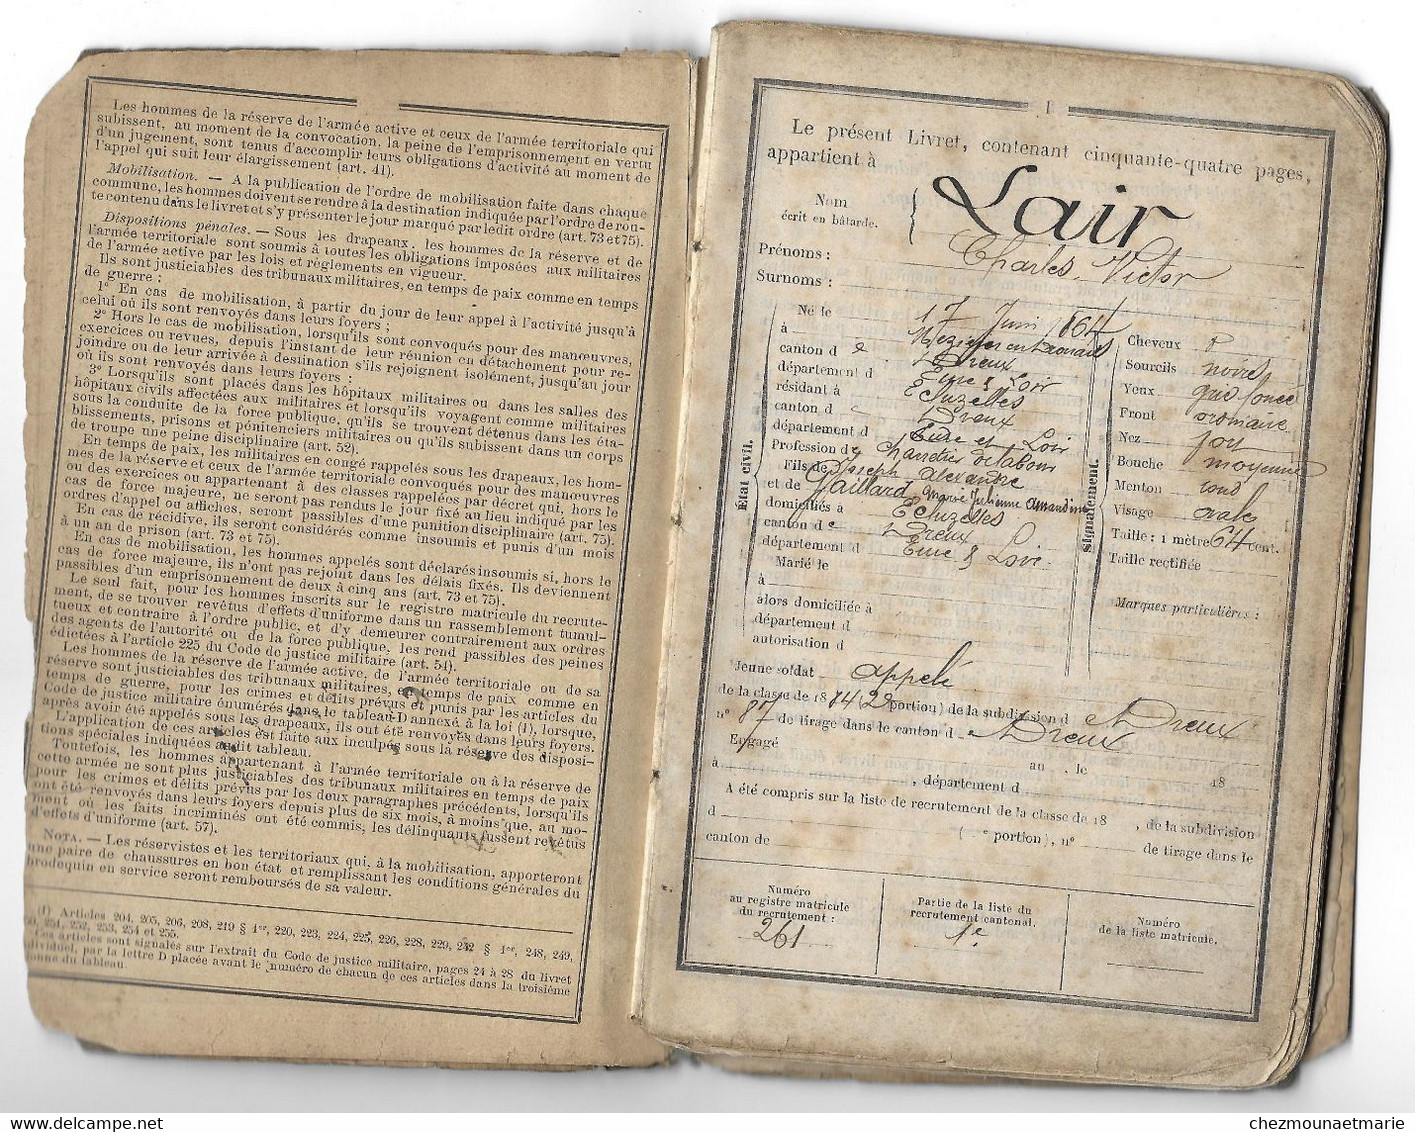 Les hommes de la réserve de l'armée active et ceux de l'armée territoriale qui
subissent, au moment de la convocation, la peine de l'emprisonnement en vertu
d'un jugement, sont tenus d'accomplir leurs obligations d'activité au moment de
l'appel qui suit leur élargissement (art. 41).
Mobilisation. — A la publication de l'ordre de mobilisation faite dans chaque
commune, les hommes doivent se rendre à la destination indiquée par l'ordre de rou-
te contenu dans le livret et s'y présenter le jour marqué par ledit ordre (art. 73 et 75).
Dispositions pénales. — Sous les drapeaux, les hommes de la réserve et de
l'armée territoriale sont soumis à toutes les obligations imposées aux militaires
de l'armée active par les lois et règlements en vigueur.
Ils sont justiciables des tribunaux militaires, en temps de paix comme en temps
de guerre :
1° En cas de mobilisation, à partir du jour de leur appel à l'activité jusqu'à
celui où ils sont renvoyés dans leurs foyers ;
2° Hors le cas de mobilisation, lorsqu'ils sont convoqués pour des manœuvres,
exercices ou revues, depuis l'instant de leur réunion en détachement pour re-
joindre ou de leur arrivée à destination s'ils rejoignent isolément, jusqu'au jour
où ils sont renvoyés dans leurs foyers ;
3° Lorsqu'ils sont placés dans les hôpitaux militaires ou dans les salles des
hôpitaux civils affectées aux militaires et lorsqu'ils voyagent comme militaires
sous la conduite de la force publique, qu'ils se trouvent détenus dans les éta-
blissements, prisons et pénitenciers militaires ou qu'ils subissent dans un corps
de troupe une peine disciplinaire (art. 52).
En temps de paix, les militaires en congé rappelés sous les drapeaux, les hom-
mes de la réserve et ceux de l'armée territoriale convoqués pour des manœuvres
ou des exercices ou appartenant à des classes rappelées par décret qui, hors le
cas de force majeure, ne seront pas rendus le jour fixé au lieu indiqué par les
ordres d'appel ou affiches, seront passibles d'une punition disciplinaire (art. 75).
En cas de récidive, ils seront considérés comme insoumis et punis d'un mois
à un an de prison (art. 73 et 75).
En cas de mobilisation, les hommes appelés sont déclarés insoumis si, hors le
cas de force majeure, ils n'ont pas rejoint dans les délais fixés. Ils deviennent
passibles d'un emprisonnement de deux à cinq ans (art. 73 et 75).
Le seul fait, pour les hommes inscrits sur le registre matricule du recrute-
ment, de se trouver revêtus d'effets d'uniforme dans un rassemblement tumul-
tueux et contraire à l'ordre public, et d'y demeurer contrairement aux ordres
des agents de l'autorité ou de la force publique, les rend passibles des peines
édictées à l'article 225 du Code de justice militaire (art. 54).
Les hommes de la réserve de l'armée active, de l'armée territoriale ou de sa
réserve sont justiciables des tribunaux militaires, en temps de paix comme en
temps de guerre, pour les crimes et délits prévus et punis par les articles du
Code de justice militaire énumérés dans le tableau D annexé à la loi (1), lorsque,
après avoir été appelés sous les drapeaux, ils ont été renvoyés dans leurs foyers.
L'application de ces articles est faite aux inculpés sous la réserve des disposi-
tions spéciales indiquées audit tableau.
Toutefois, les hommes appartenant à l'armée territoriale ou à la réserve de
cette armée ne sont plus justiciables des tribunaux militaires en temps de paix
pour les crimes et délits prévus par les deux paragraphes précédents, lorsqu'ils
ont été renvoyés dans leurs foyers depuis plus de six mois, à moins que, au mo-
ment où les faits incriminés ont été commis, les délinquants fussent revêtus
d'effets d'uniforme (art. 57).
NOTA. — Les réservistes et les territoriaux qui, à la mobilisation, apporteront
une paire de chaussures en bon état et remplissant les conditions générales du
brodequin en service seront remboursés de sa valeur.
(1) Articles 204, 205, 206, 208, 219 § 1er, 220, 223, 224, 225, 226, 228, 229, 232 § 1er, 248, 249,
250, 251, 252, 253, 254 et 255.
Ces articles sont signalés sur l'extrait du Code de justice militaire, pages 24 à 28 du livret
individuel, par la lettre D placée avant le numéro de chacun de ces articles dans la troisième
colonne du tableau.
1
Le présent Livret, contenant cinquante-quatre pages,
appartient à
Nom
écrit en bâtarde.
Lair
Prénoms : Charles Victor
Surnoms :
État civil.
Né le 17 Juin 1864
à
canton de Dreux
département d Eure & Loir
résidant à Ecluzelles
canton d Dreux
département d Eure et Loir
Profession de Charretier de labour
Fils de Joseph Alexandre
et de Gaillard Marie Julienne Amandine
domiciliés à Ecluzelles
canton de Dreux
département d Eure & Loir
Marié le
à
alors domiciliée à
département d
autorisation d
Signalement.
Cheveux
Sourcils noirs
Yeux gris foncé
Front ordinaire
Nez
Bouche moyenne
Menton rond
Visage ovale
Taille : 1 mètre 64 cent.
Taille rectifiée
Marques particulières :
Jeune soldat appelé
de la classe de 1884 (2e portion) de la subdivision d Dreux
n° 87 de tirage dans le canton d Dreux
Engagé au , le 18
à , département d
A été compris sur la liste de recrutement de la classe de 18 , de la subdivision
d ( e portion), n° de tirage dans le
canton de
Numéro
au registre matricule
du recrutement :
261
Partie de la liste du
recrutement cantonal.
1e
Numéro
de la liste matricule.
chezmounaetmarie